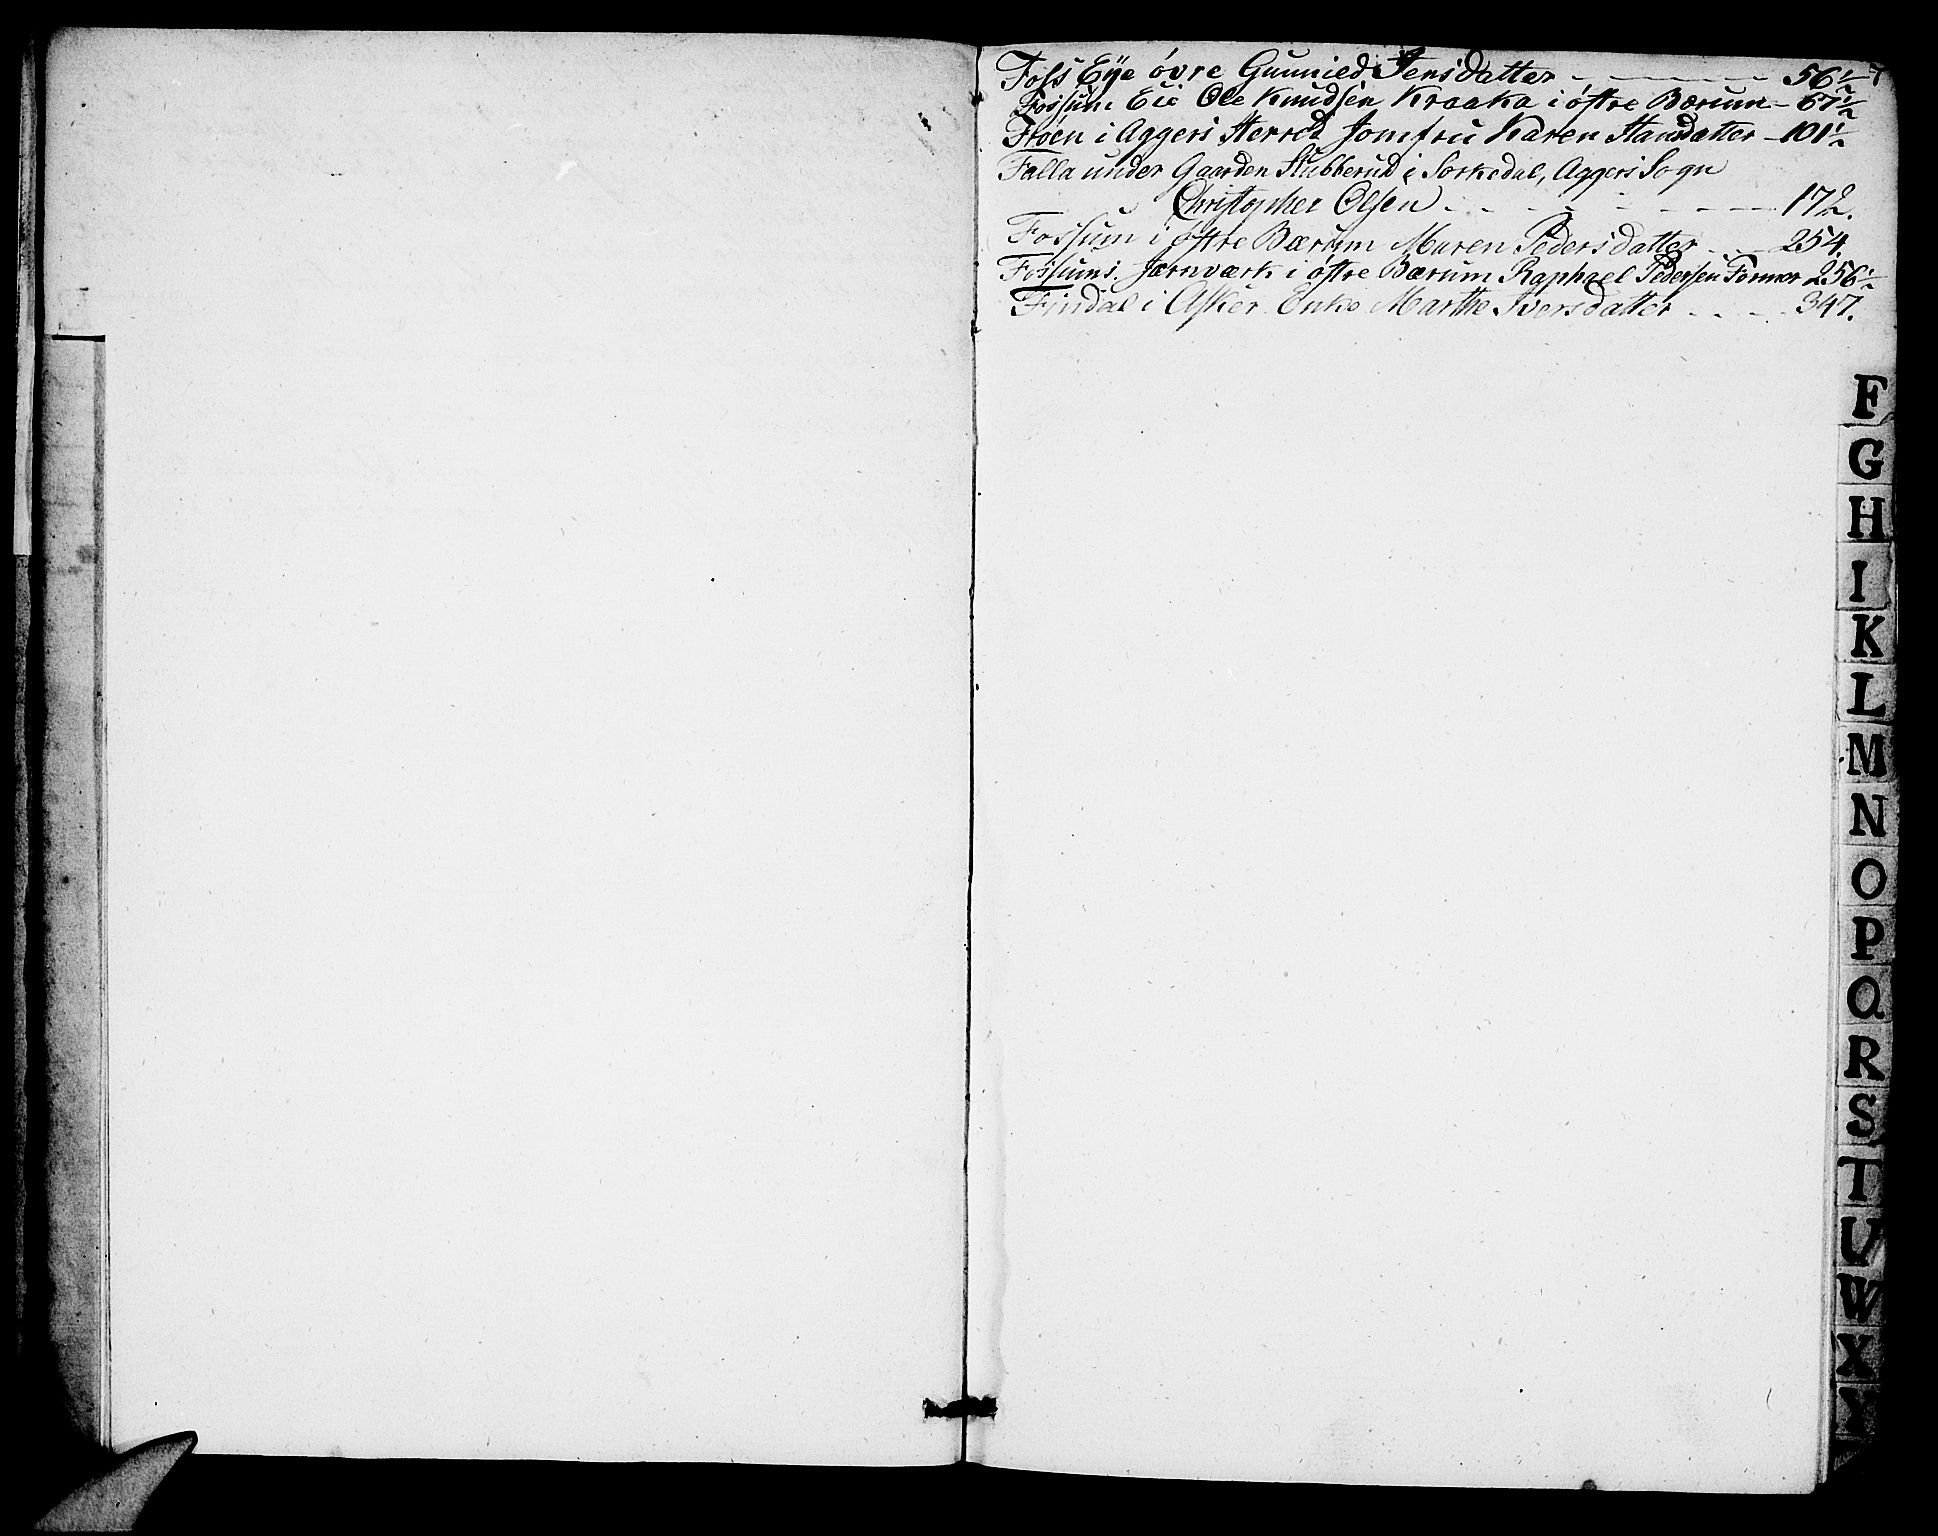 Foss Eÿe övre Gunnied Jensdatter - - - - 56 1/2 7
Fossum Eie Ole Knudsen Kraaka i östre Bærum - 67 1/2
Fröen i Aggers Herred Jomfru Karen Hansdatter - 101 1/2
Falla under Gaarden Stubberud i Sorkedal, Aggers Sogn
Christopher Olsen - - - - - - 172.
Fossum i östre Bærum Maren Pedersdatter - - 254.
Fossums Jernværk i östre Bærum Raphael Pedersen Former 256 1/2
Findal i Asker Enke Marthe Iversdatter - - - - 347.
F
G
H
I
K
L
M
N
O
P
Q
R
S
T
U
W
X